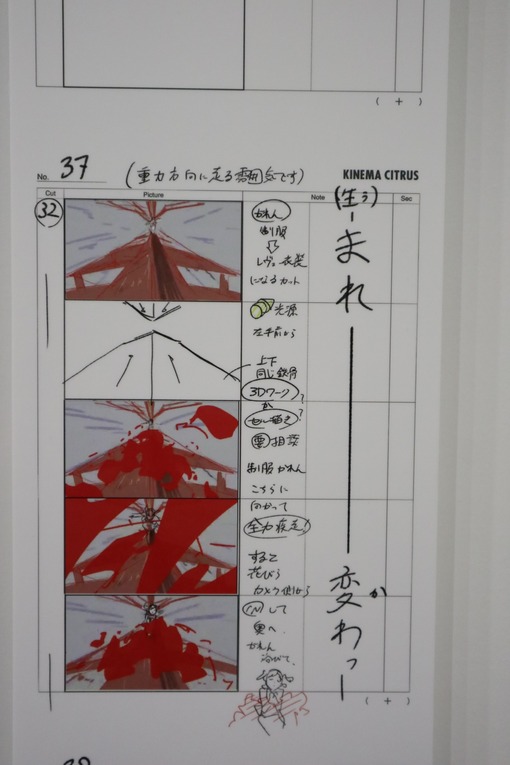 ( + )
No. 37
(重力方向に走る雰囲気です)
KINEMA CITRUS
Cut
Picture
Note
Sec
32
かれん
制服
レヴュー衣装
になるカット
光源
左手前から
上下
同じ鉄骨
3Dワーク?
か
セル描き?
要相談
制服かれん
こちらに
向かって
全力疾走!
すると
花びら
カメラ側から
INして
奥へ
かれん
浴びて、
(生う)
まれ
変わっ
か
( + )